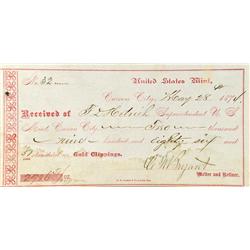 No. 32
United States Mint,
Carson City, May 28th 1874
Received of F. D. Hetrich Superintendent U. S.
Mint, Carson City Two thousand
nine hundred and eighty six and
Gold Clippings.
Melter and Refiner.